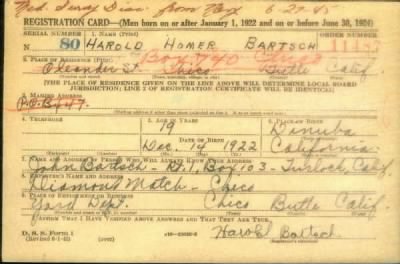 6-27-45
REGISTRATION CARD—(Men born on or after January 1, 1922 and on or before June 30, 1924)
SERIAL NUMBER 1. NAME (Print) ORDER NUMBER
80 HAROLD HOMER BARTSCH
Box 740 Chico
2. PLACE OF RESIDENCE (Print)
Oleander St Chico Butte Calif
[THE PLACE OF RESIDENCE GIVEN ON THE LINE ABOVE WILL DETERMINE LOCAL BOARD
JURISDICTION; LINE 2 OF REGISTRATION CERTIFICATE WILL BE IDENTICAL]
3. MAILING ADDRESS
P.O. Box 47
4. TELEPHONE 5. AGE IN YEARS 6. PLACE OF BIRTH
19 Dinuba
DATE OF BIRTH
Dec. 14 1922 California
7. NAME AND ADDRESS OF PERSON WHO WILL ALWAYS KNOW YOUR ADDRESS
John Bartsch - Rt. 1, Box 103 - Turlock, Calif.
8. EMPLOYER'S NAME AND ADDRESS
Diamond Match - Chico
9. PLACE OF EMPLOYMENT OR BUSINESS
Yard Dept. Chico Butte Calif.
I AFFIRM THAT I HAVE VERIFIED ABOVE ANSWERS AND THAT THEY ARE TRUE.
D. S. S. Form 1
Harold Bartsch